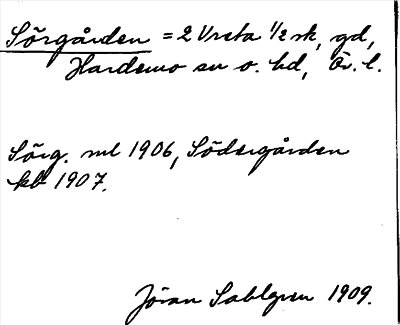 Sörgården = 2 Vreta 1/2 sk, gd,
Hardemo sn o. hd, Ör. l.
Sörg. ml 1906, Södergården
kb 1907.
Jöran Sahlgren 1909.